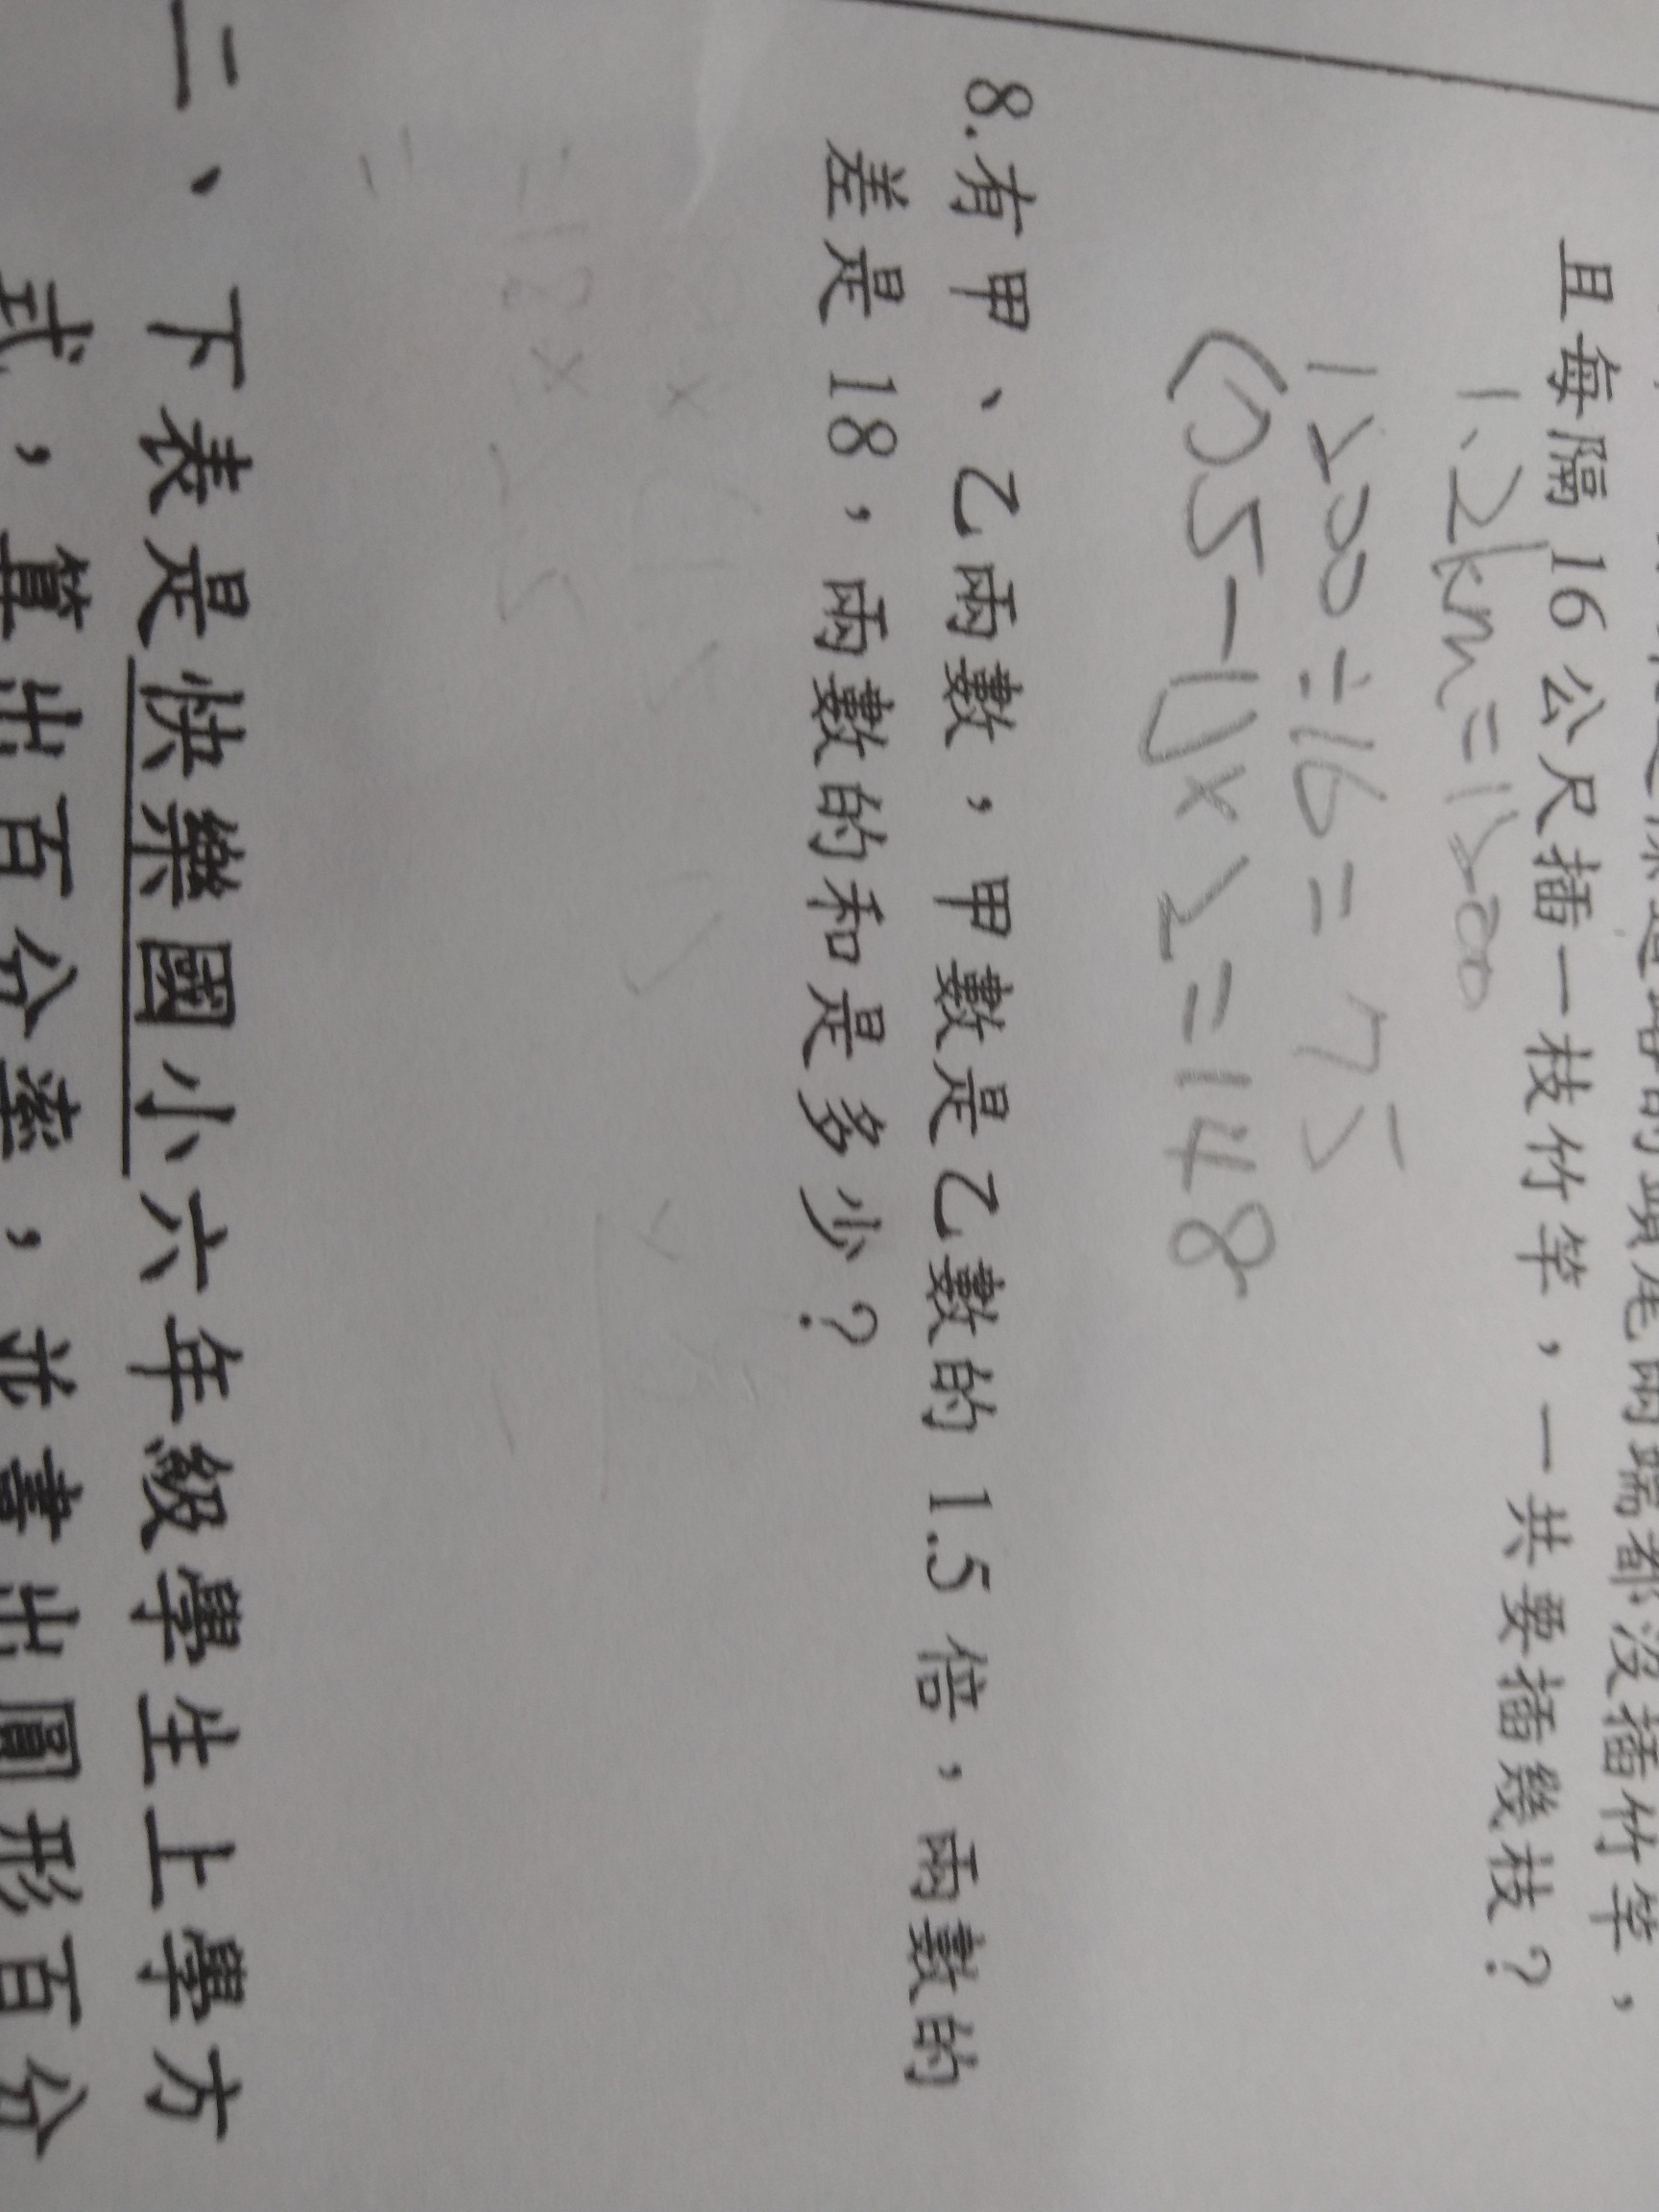 頭尾兩端都沒插竹竿，
且每隔 16 公尺插一枝竹竿，一共要插幾枝？
1.2km=1200
1200÷16=75
(75-1)×2=148
8.有甲、乙兩數，甲數是乙數的 1.5 倍，兩數的
差是 18，兩數的和是多少？
二、下表是快樂國小六年級學生上學方
式，算出百分率，並畫出圓形百分